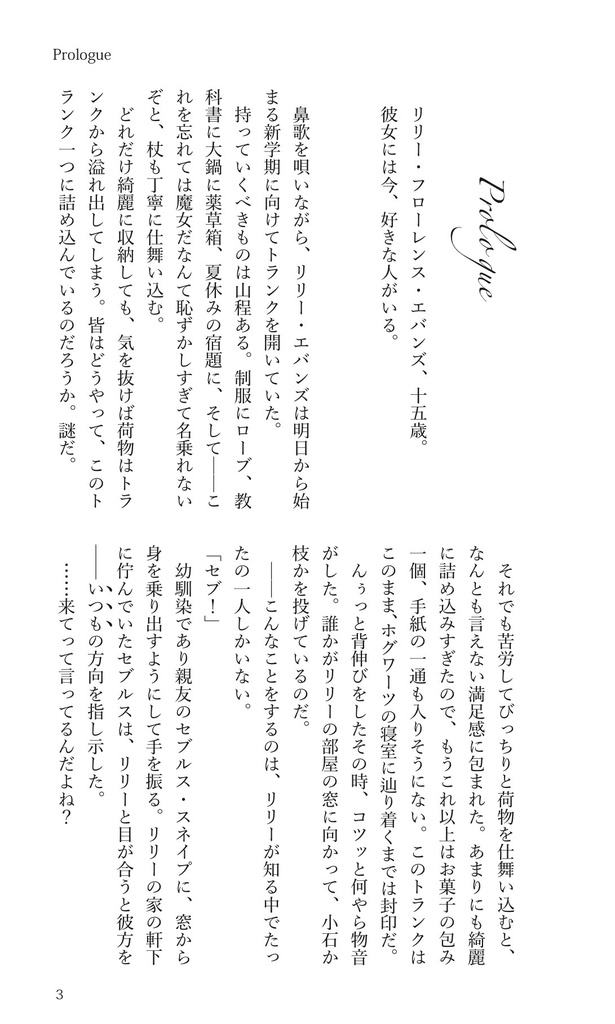 Prologue
Prologue
リリー・フローレンス・エバンズ、十五歳。
彼女には今、好きな人がいる。
鼻歌を唄いながら、リリー・エバンズは明日から始
まる新学期に向けてトランクを開いていた。
持っていくべきものは山程ある。制服にローブ、教
科書に大鍋に薬草箱、夏休みの宿題に、そして――こ
れを忘れては魔女だなんて恥ずかしすぎて名乗れない
ぞと、杖も丁寧に仕舞い込む。
どれだけ綺麗に収納しても、気を抜けば荷物はトラ
ンクから溢れ出してしまう。皆はどうやって、このト
ランク一つに詰め込んでいるのだろうか。謎だ。
それでも苦労してびっちりと荷物を仕舞い込むと、
なんとも言えない満足感に包まれた。あまりにも綺麗
に詰め込みすぎたので、もうこれ以上はお菓子の包み
一個、手紙の一通も入りそうにない。このトランクは
このまま、ホグワーツの寝室に辿り着くまでは封印だ。
んぅっと背伸びをしたその時、コツッと何やら物音
がした。誰かがリリーの部屋の窓に向かって、小石か
枝かを投げているのだ。
――こんなことをするのは、リリーが知る中でたっ
たの一人しかいない。
「セブ！」
幼馴染であり親友のセブルス・スネイプに、窓から
身を乗り出すようにして手を振る。リリーの家の軒下
に佇んでいたセブルスは、リリーと目が合うと彼方を
――いつもの方向を指し示した。
……来てって言ってるんだよね？
3